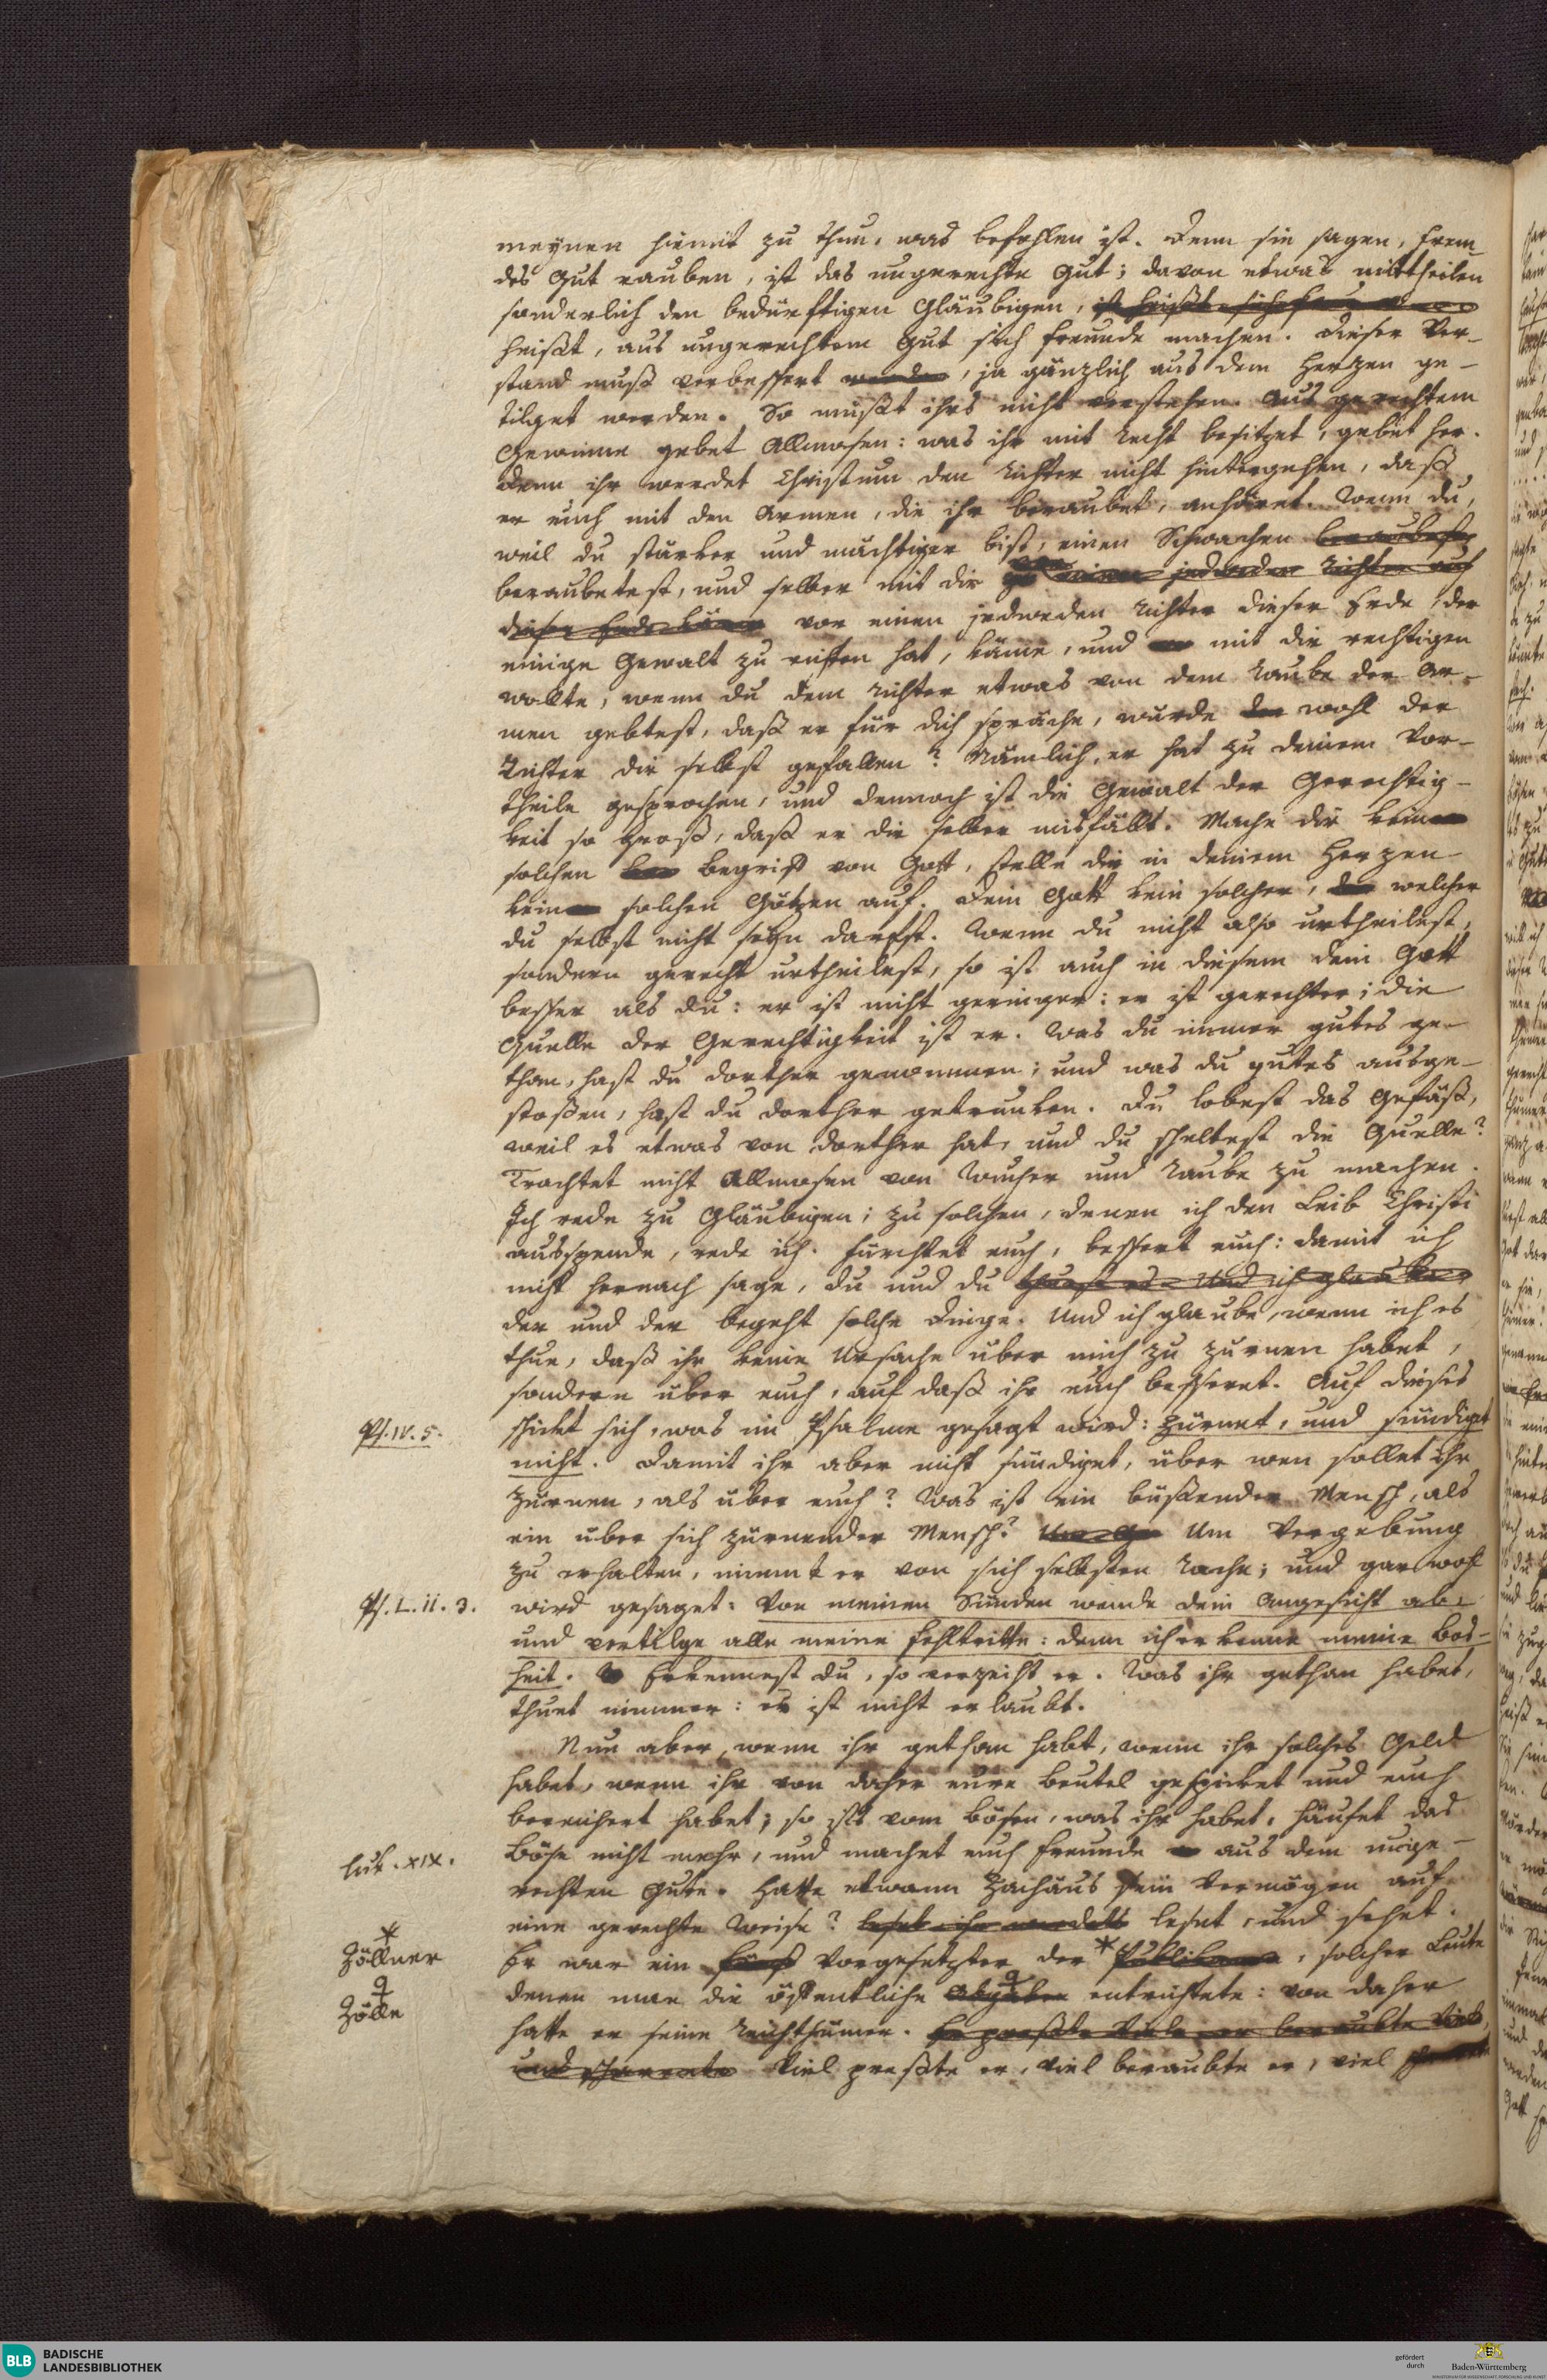 meynen hiemit zu thun, was befohlen ist. Denn sie sagen, frem-
des Gut rauben, ist das ungerechte Gut; davon etwas mittheilen
sonderlich den bedürftigen Gläubigen, ist heißt sich
heißt, aus ungerechtem Gut sich Freunde machen. Dieser Ver-
stand muß verbessert werden, ja gänzlich aus dem Herzen ge-
tilget werden. So müßt ihrs nicht verstehen. Aus gerechtem
Gewinne gebet Allmosen: was ihr mit Recht besitzet, gebet her.
Denn ihr werdet Christum den Richter nicht hintergehen, daß
er euch mit den Armen, die ihr beraubet, anhöret. Wenn du,
weil du stärker und mächtiger bist, einen Schwachen beraubest
beraubetest, und selber mit dir zu einem jedweden Richter auf
dieser Erde käme vor einen jedweden Richter dieser Erde, der
einige Gewalt zu richten hat, käme, und mit dir rechtigen
wollte, wenn du dem Richter etwas von dem Raube der Ar-
men gebtest, daß er für dich spräche, wurde der wohl der
Richter dir selbst gefallen? Nämlich, er hat zu deinem Vor-
theile gesprochen, und dennoch ist die Gewalt der Gerechtig-
keit so groß, daß er dir selber misfällt. Mache dir keinen
solchen Begriff von Gott, stelle dir in deinem Herzen
keinen solchen Götzen auf. Dein Gott kein solcher, der welcher
du selbst nicht seyn darfst. Wenn du nicht also urtheilest,
sondern gerecht urtheilest, so ist auch in diesem dein Gott
besser als du: er ist nicht geringer: er ist gerechter; die
Quelle der Gerechtigkeit ist er. Was du immer gutes ge-
than, hast du dorther genommen; und was du gutes ausge-
stoßen, hast du dorther getrunken. Du lobest das Gefäß,
weil es etwas von dorther hat, und du scheltest die Quelle?
Trachtet nicht Allmosen von Wucher und Raube zu machen.
Ich rede zu Gläubigen; zu solchen, denen ich den Leib Christi
ausspende, rede ich. Fürchtet euch, bessert euch: damit ich
nicht hernach sage, du und du thuest es. Und ich glaube
der und der begeht solche Dinge. Und ich glaube, wenn ich es
thue, daß ihr keine Ursache über mich zu zürnen habet,
sondern über euch, auf daß ihr euch besseret. Auf dieses
Ps. IV. 5.
schickt sich, was im Psalme gesagt wird: Zürnet, und sündiget
nicht. Damit ihr aber nicht sündiget, über wen sollet ihr
zürnen, als über euch? Was ist ein büßender Mensch, als
ein über sich zürnender Mensch? Um Um Vergebung
zu erhalten, nimmt er von sich selbsten Rache; und gar wohl
Ps. L. 11. 3.
wird gesaget: Von meinen Sünden wende dein Angesicht ab:
und vertilge alle meine Fehltritte: denn ich erkenne meine Bos-
heit. Erkennest du, so verzeiht er. Was ihr gethan habet,
thuet nimmer: es ist nicht erlaubt.
Nun aber, wenn ihr gethan habt, wenn ihr solches Geld
habet, wenn ihr von daher eure Beutel gespicket und euch
bereichert habet; so ists vom bösen, was ihr habet, häufet das
Luk. XIX.
Böse nicht mehr, und machet euch Freunde aus dem unge-
rechten Gute. Hatte etwann Zachäus sein Vermögen auf
eine gerechte Weise? leset ihr werdets leset, und sehet.
* Zöllner
Er war ein Fürst Vorgesetzter der * Publikanen, solcher Leute
Zölle
denen man die öffentliche Abgaben entrichtete: von daher
hatte er seine Reichthümer. Er preßte Viele, er beraubte Viele,
und scharrete Viel preßte er, viel beraubte er, viel
BLB BADISCHE
LANDESBIBLIOTHEK
gefördert
durch
Baden-Württemberg